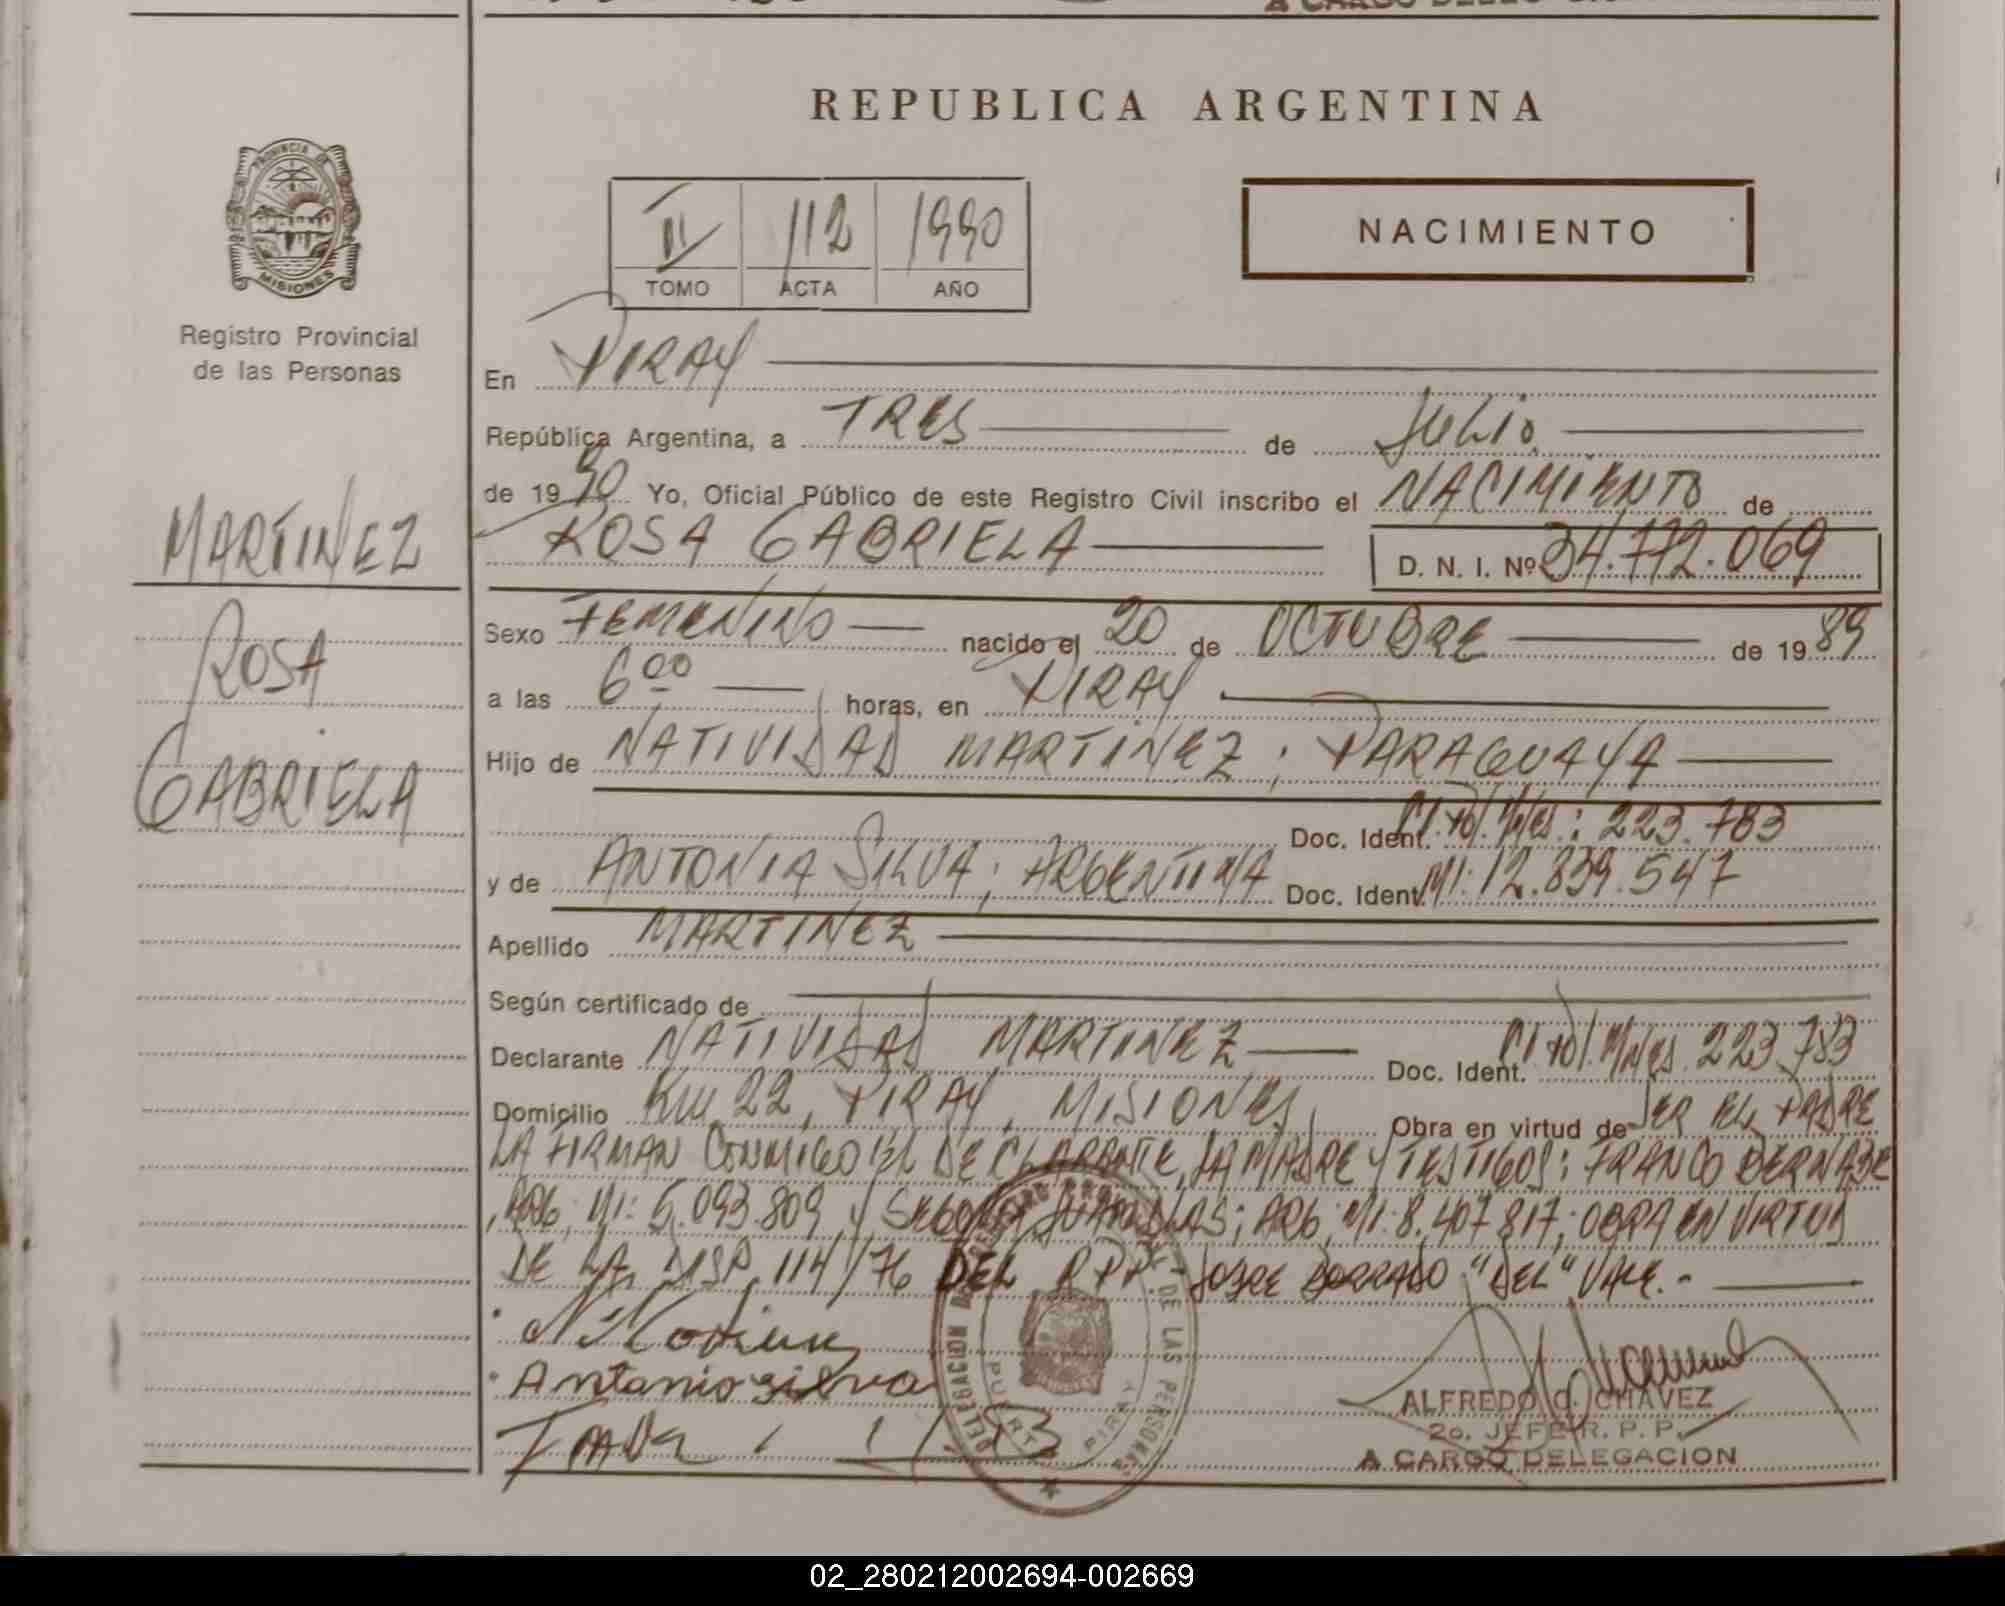 A CARGO DELEG
REPUBLICA ARGENTINA
PROVINCIA DE
MISIONES
Registro Provincial
de las Personas
II 112 1990
TOMO ACTA AÑO
NACIMIENTO
En PIRAY
República Argentina, a TRES de JULIO
de 1990 Yo, Oficial Público de este Registro Civil inscribo el NACIMIENTO de
ROSA GABRIELA D. N. I. Nº 34.772.069
MARTINEZ
ROSA
GABRIELA
Sexo FEMENINO nacido el 20 de OCTUBRE de 1989
a las 6 00 horas, en PIRAY
Hijo de NATIVIDAD MARTINEZ; PARAGUAYA
Doc. Ident. CI. Pol. Mnes.: 223.783
y de ANTONIA SILVA; ARGENTINA Doc. Ident. MI: 12.839.547
Apellido MARTINEZ
Según certificado de
Declarante NATIVIDAD MARTINEZ Doc. Ident. CI Pol. Mnes. 223.783
Domicilio KM 22, PIRAY, MISIONES Obra en virtud de SER EL PADRE
LA FIRMAN CONMIGO EL DECLARANTE, LA MADRE Y TESTIGOS: FRANCO BERNABE
, ARG; MI: 5.093.809 y JUAN ARG; MI: 8.407.817; OBRA EN VIRTUD
DE LA DISP. 114/76 DEL RPP. SOBRE BORRADO "DEL" VALE.-
Antonio silva
DELEGACION REGISTRO PROVINCIAL DE LAS PERSONAS
PUERTO PIRAY
ALFREDO C. CHAVEZ
2o. JEFE R. P. P.
A CARGO DELEGACION
02_280212002694-002669